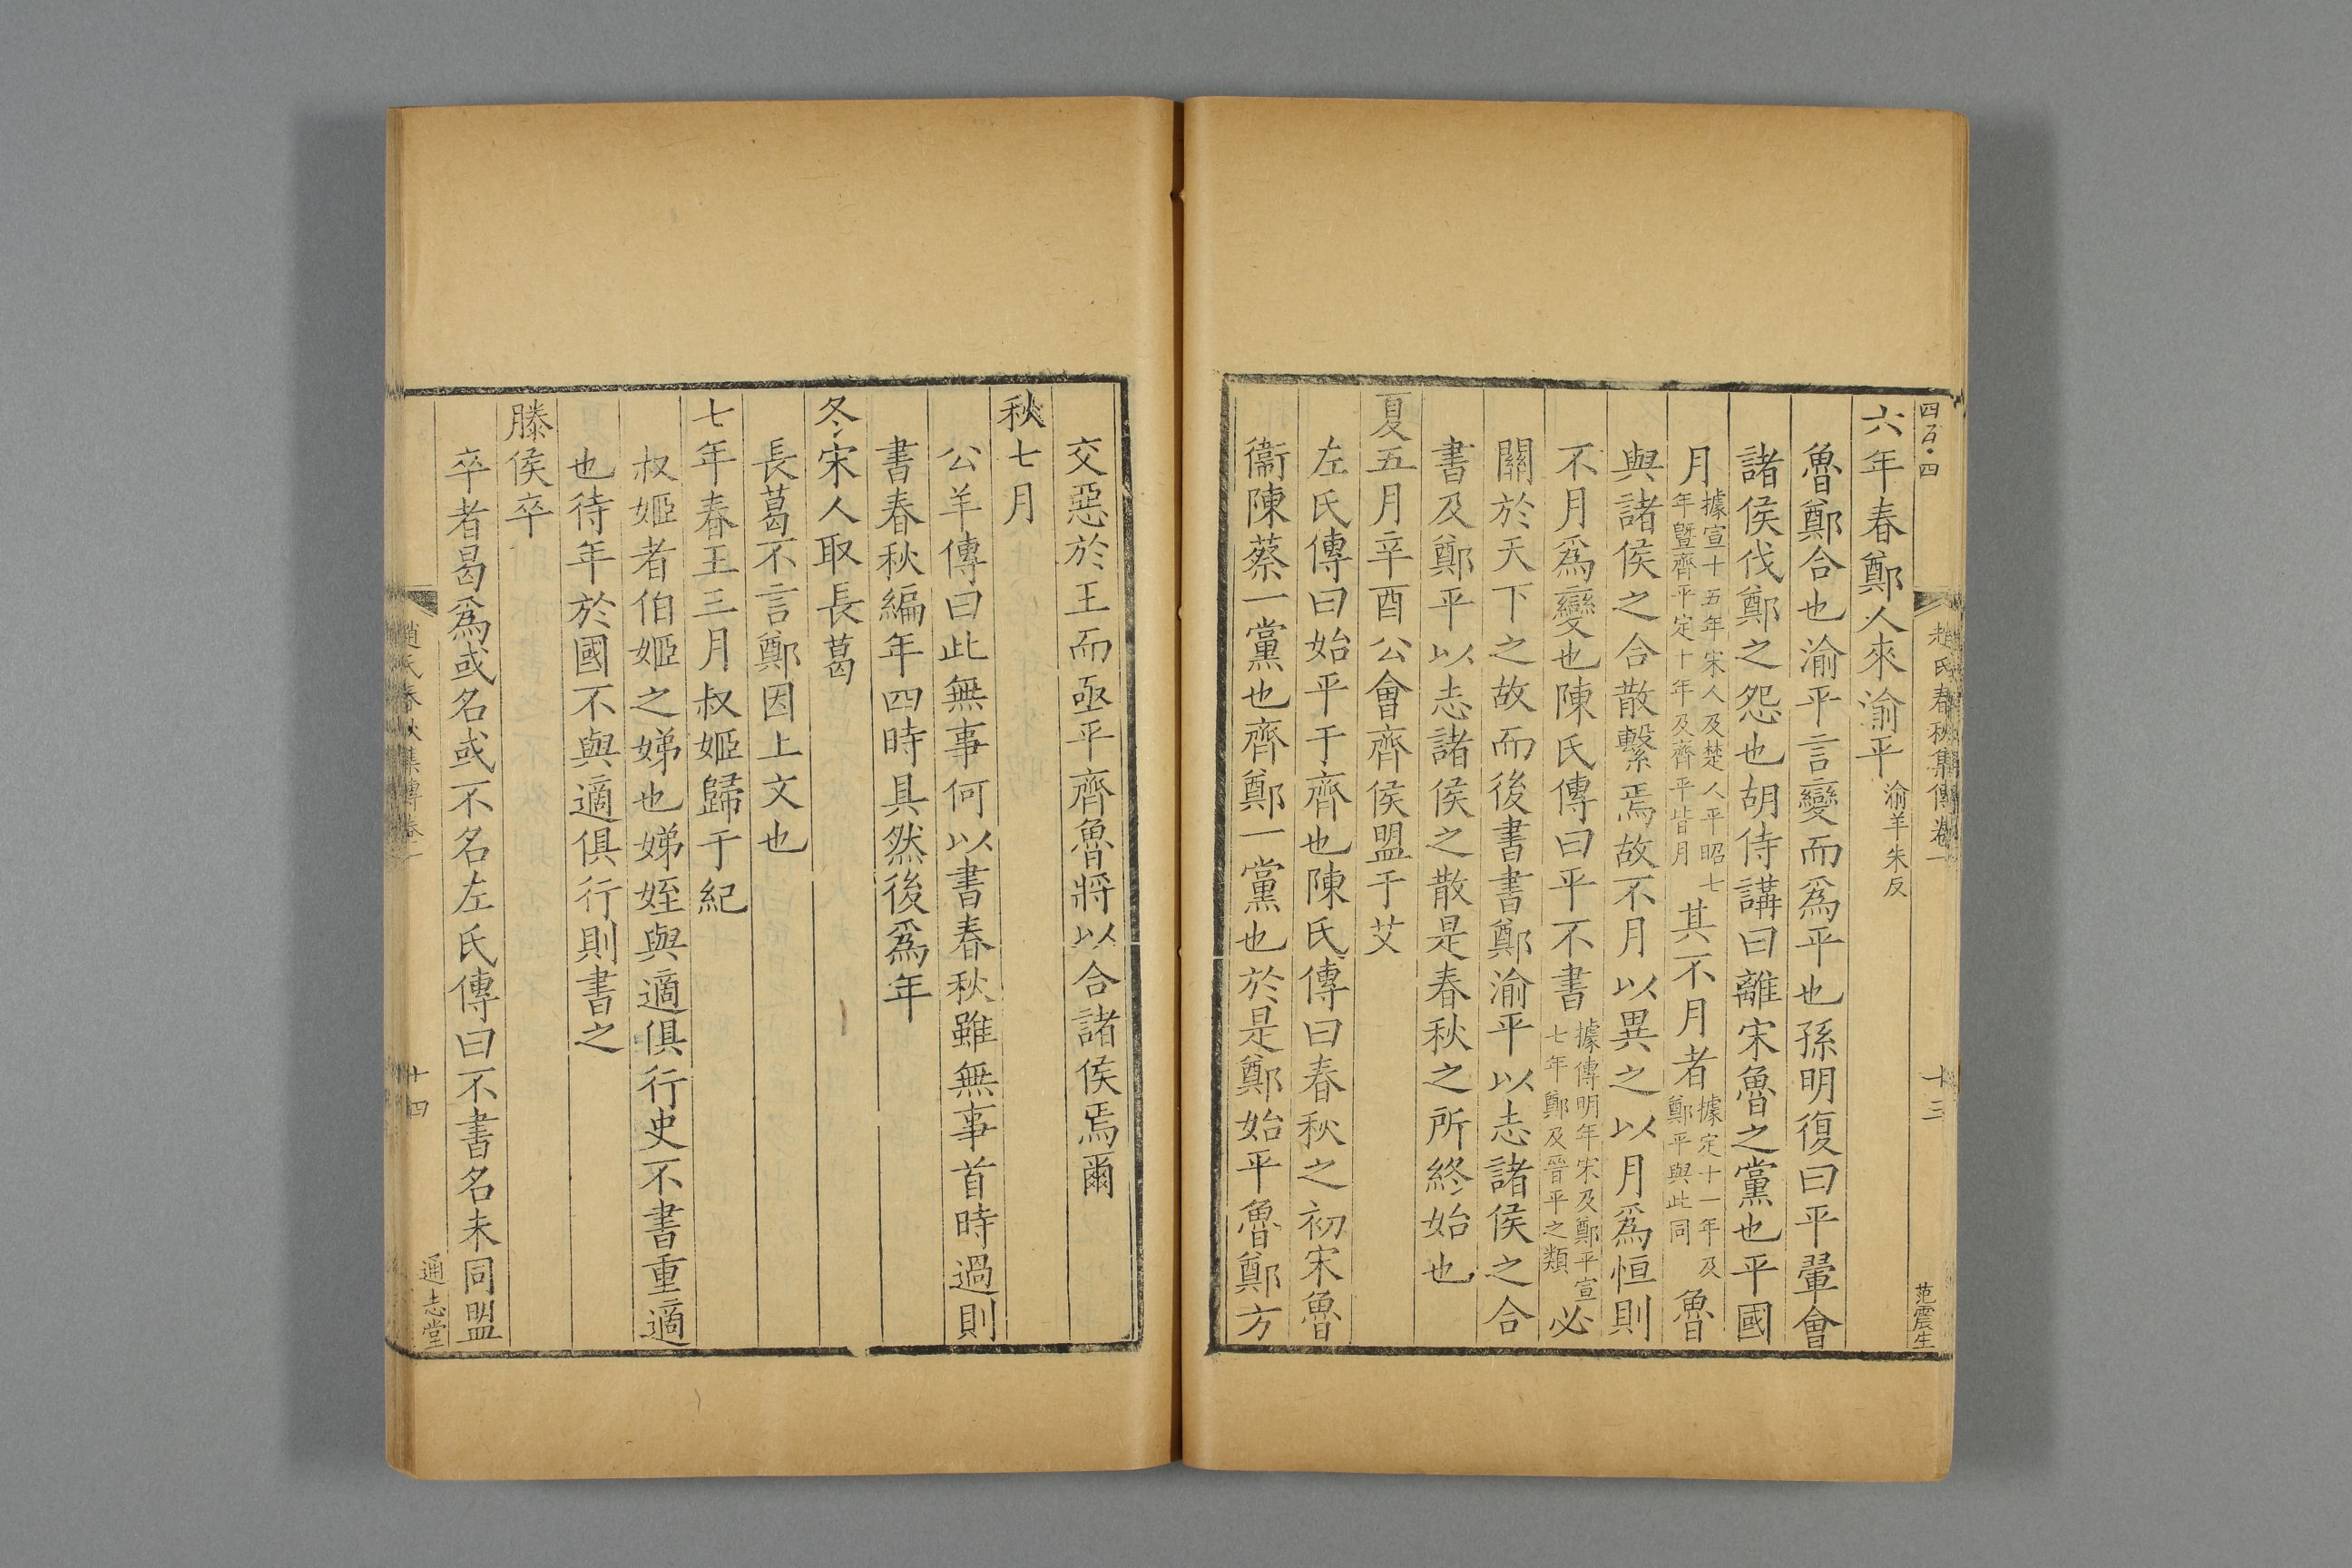 四百四
趙氏春秋集傳卷一
十三
范震生
六年春鄭人來渝平渝羊朱反
魯鄭合也渝平言變而爲平也孫明復曰平翬會
諸侯伐鄭之怨也胡侍講曰離宋魯之黨也平國
月據宣十五年宋人及楚人平昭七年曁齊平定十年及齊平皆月其不月者據定十一年及鄭平與此同魯
與諸侯之合散繫焉故不月以異之以月爲恒則
不月爲變也陳氏傳曰平不書據傳明年宋及鄭平宣七年鄭及晉平之類必
關於天下之故而後書書鄭渝平以志諸侯之合
書及鄭平以志諸侯之散是春秋之所終始也
夏五月辛酉公會齊侯盟于艾
左氏傳曰始平于齊也陳氏傳曰春秋之初宋魯
衞陳蔡一黨也齊鄭一黨也於是鄭始平魯鄭方
交惡於王而亟平齊魯將以合諸侯焉爾
秋七月
公羊傳曰此無事何以書春秋雖無事首時過則
書春秋編年四時具然後爲年
冬宋人取長葛
長葛不言鄭因上文也
七年春王三月叔姬歸于紀
叔姬者伯姬之娣也娣姪與適俱行史不書重適
也待年於國不與適俱行則書之
滕侯卒
卒者曷爲或名或不名左氏傳曰不書名未同盟
趙氏春秋集傳卷一
十四
通志堂